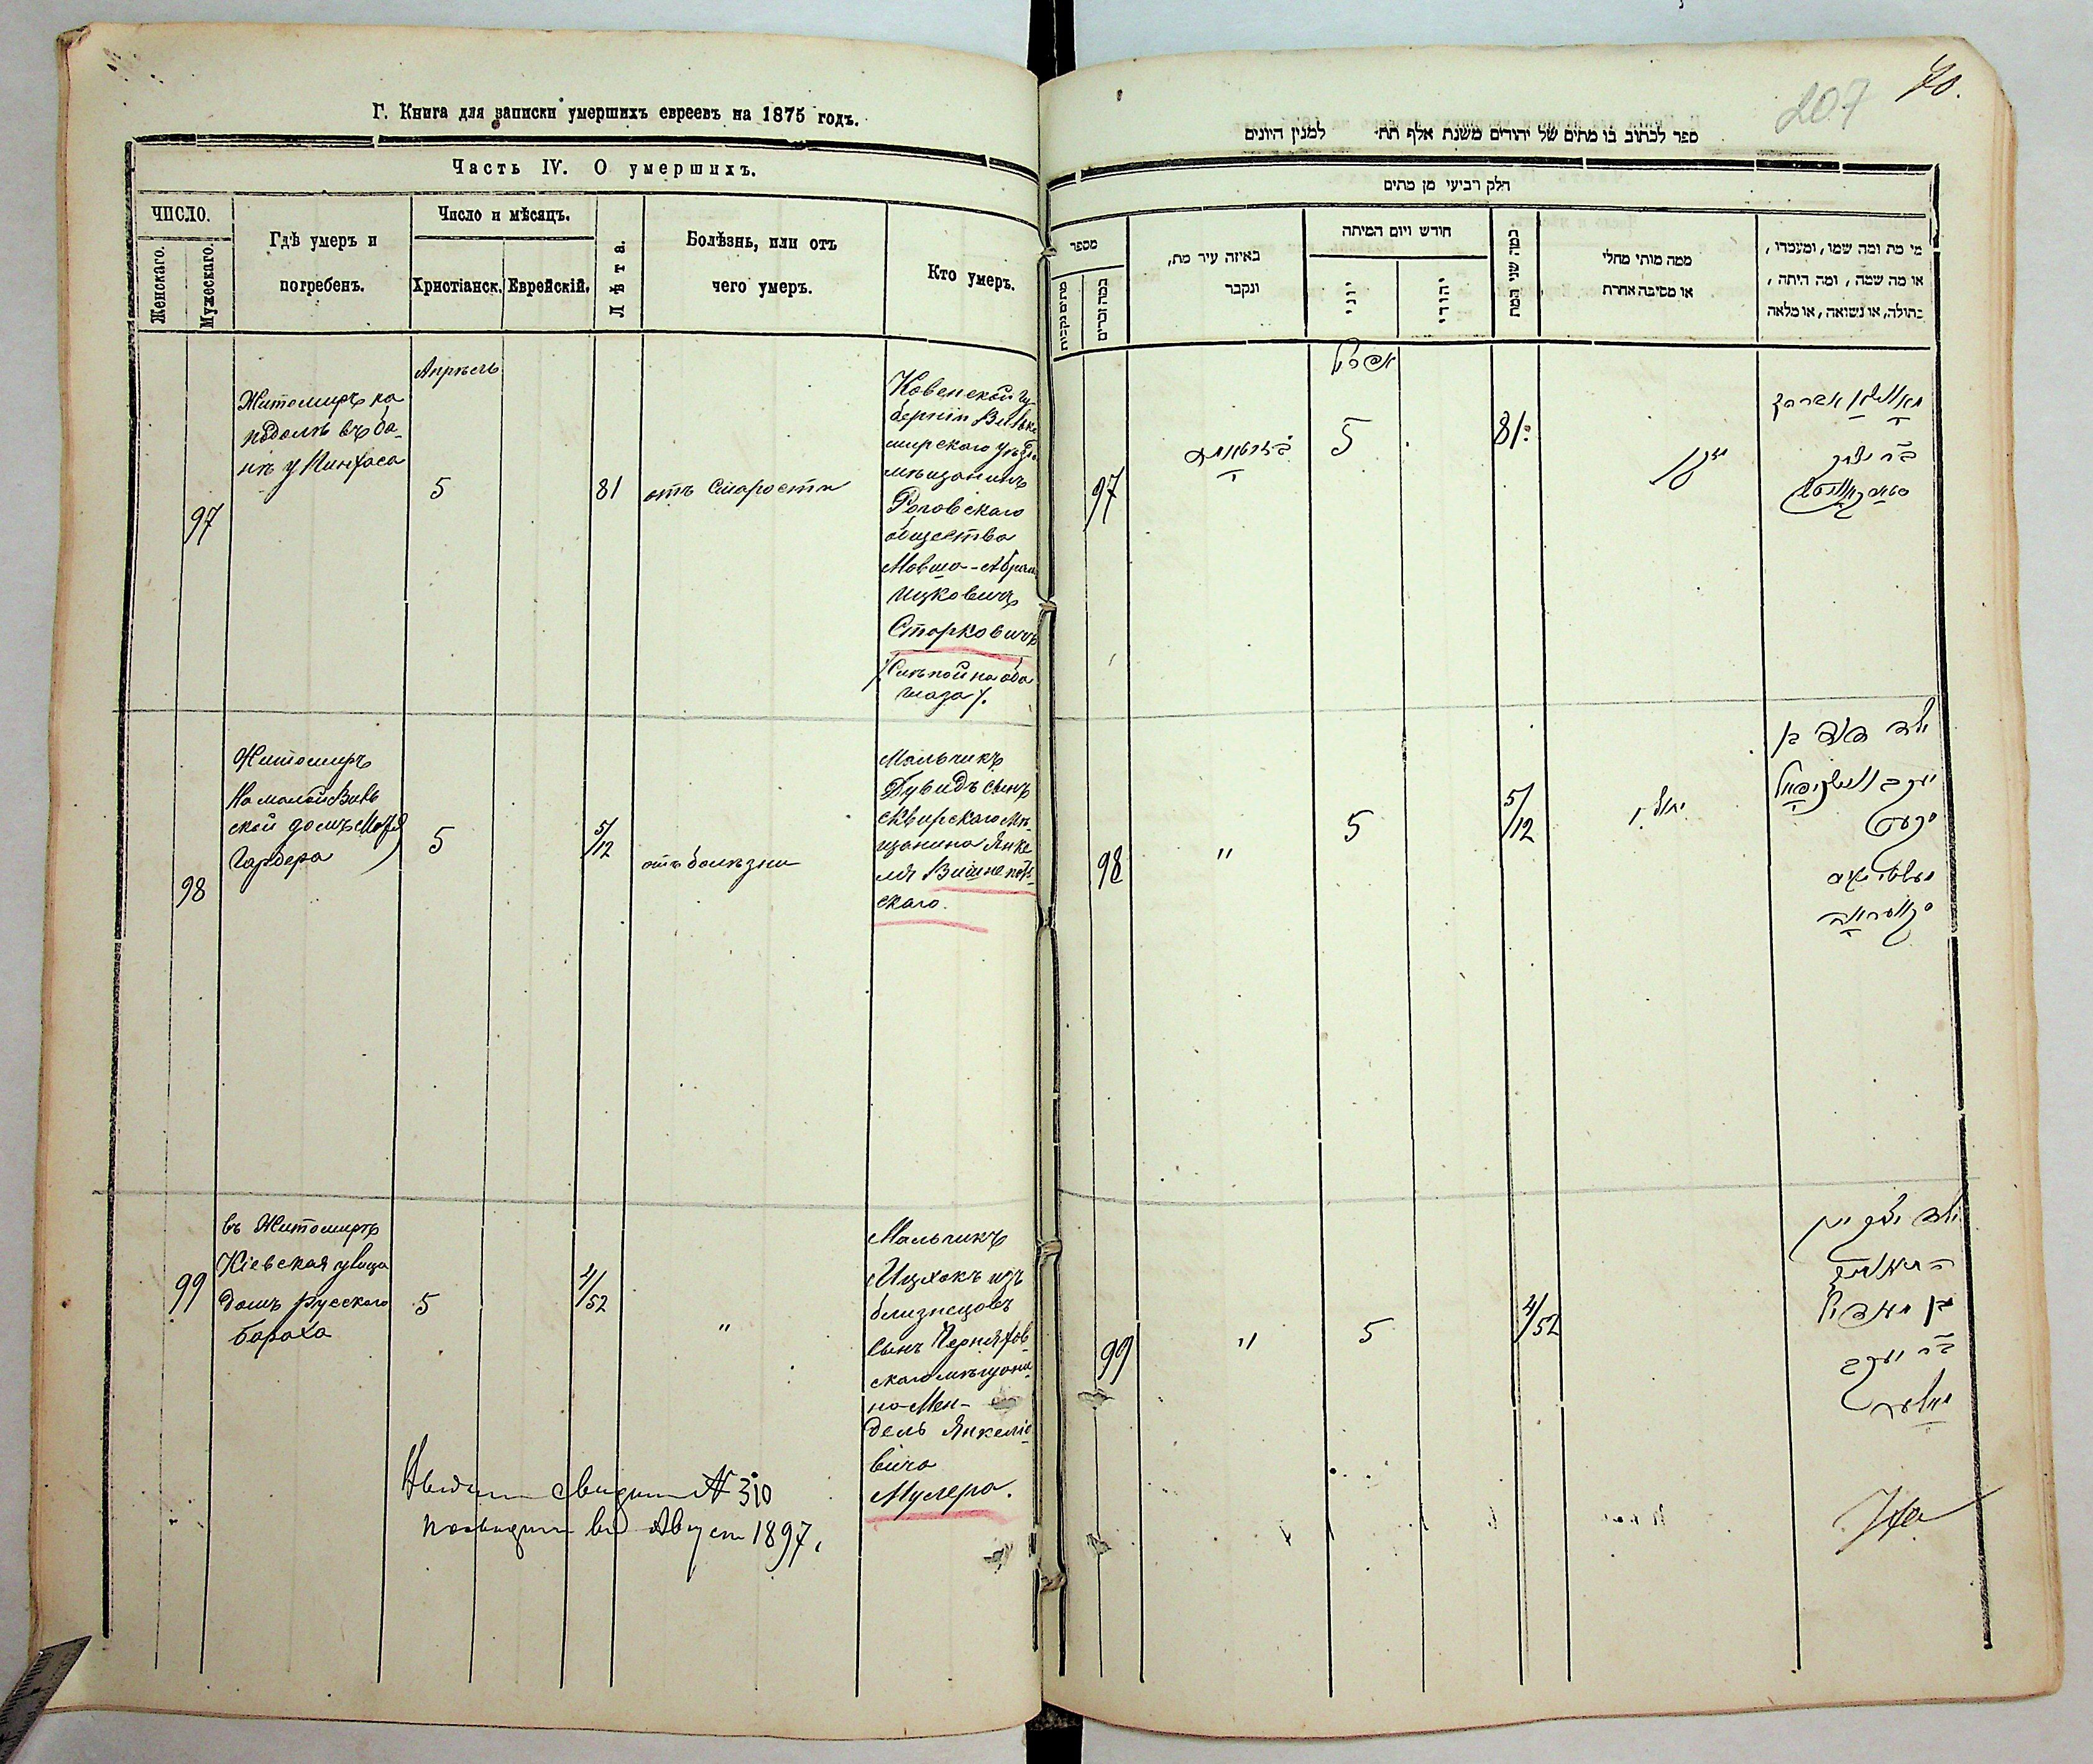 Г. Книга для записки умершихъ евреевъ на 1875 годъ.
Часть IV. О умершихъ.
ЧИСЛО.
Женскаго.
Мужескаго.
Гдѣ умеръ и
погребенъ.
Число и мѣсяцъ.
Христіанск.
Еврейскій.
Лѣта.
Болѣзнь, или отъ
чего умеръ.
Кто умеръ.
97
Житомиръ на
подолѣ въ ба-
нѣ у Пинхаса
Апрѣль
5
81
отъ старости
Ковенской гу
берніи Вильке
мирскаго уѣзда
мѣщанинъ
Роговскаго
общества
Мовша-Абрам
Ицковичъ
Старковичъ
/Слѣпой на оба
глаза/.
98
Житомиръ
На малой Виль
ской домъ
Гарбера
5
5/12
отъ болѣзни
Мальчикъ
Дувидъ сынъ
сквирскаго мѣ-
щанина Янке
ля Вишнепол-
скаго.
99
въ Житомирѣ
Кіевская улица
домъ Русскаго
бараха
5
4/52
"
Мальчикъ
Ицхокъ изъ
близнецовъ
сынъ Черняхов
скаго мѣщани
на Мен-
дель Янкеліо
вича
Мулера.
№ 310
въ Август 1897.
207
70.
ספר לכתוב בו מתים של יהודים משנת אלף תת׳ למנין היונים
חלק רביעי מן מתים
מספר
מתים נקבות
כמה זכרים
באיזה עיר מת,
ונקבר
חודש ויום המיתה
יוני
יהודי
כמה שני המת
ממה מותי מחלי
או מסיבה אחרת
מי מת ומה שמו, ומעמדו,
או מה שמה, ומה היתה,
בתולה, או נשואה, או מלאה
97
אפריל
5
81
זקן
בר יצחק
98
"
5
5/12
ילד דוד בן
יעקב
99
"
5
4/52
ילד יצחק
בן מענדיל
בר יעקב
מולער